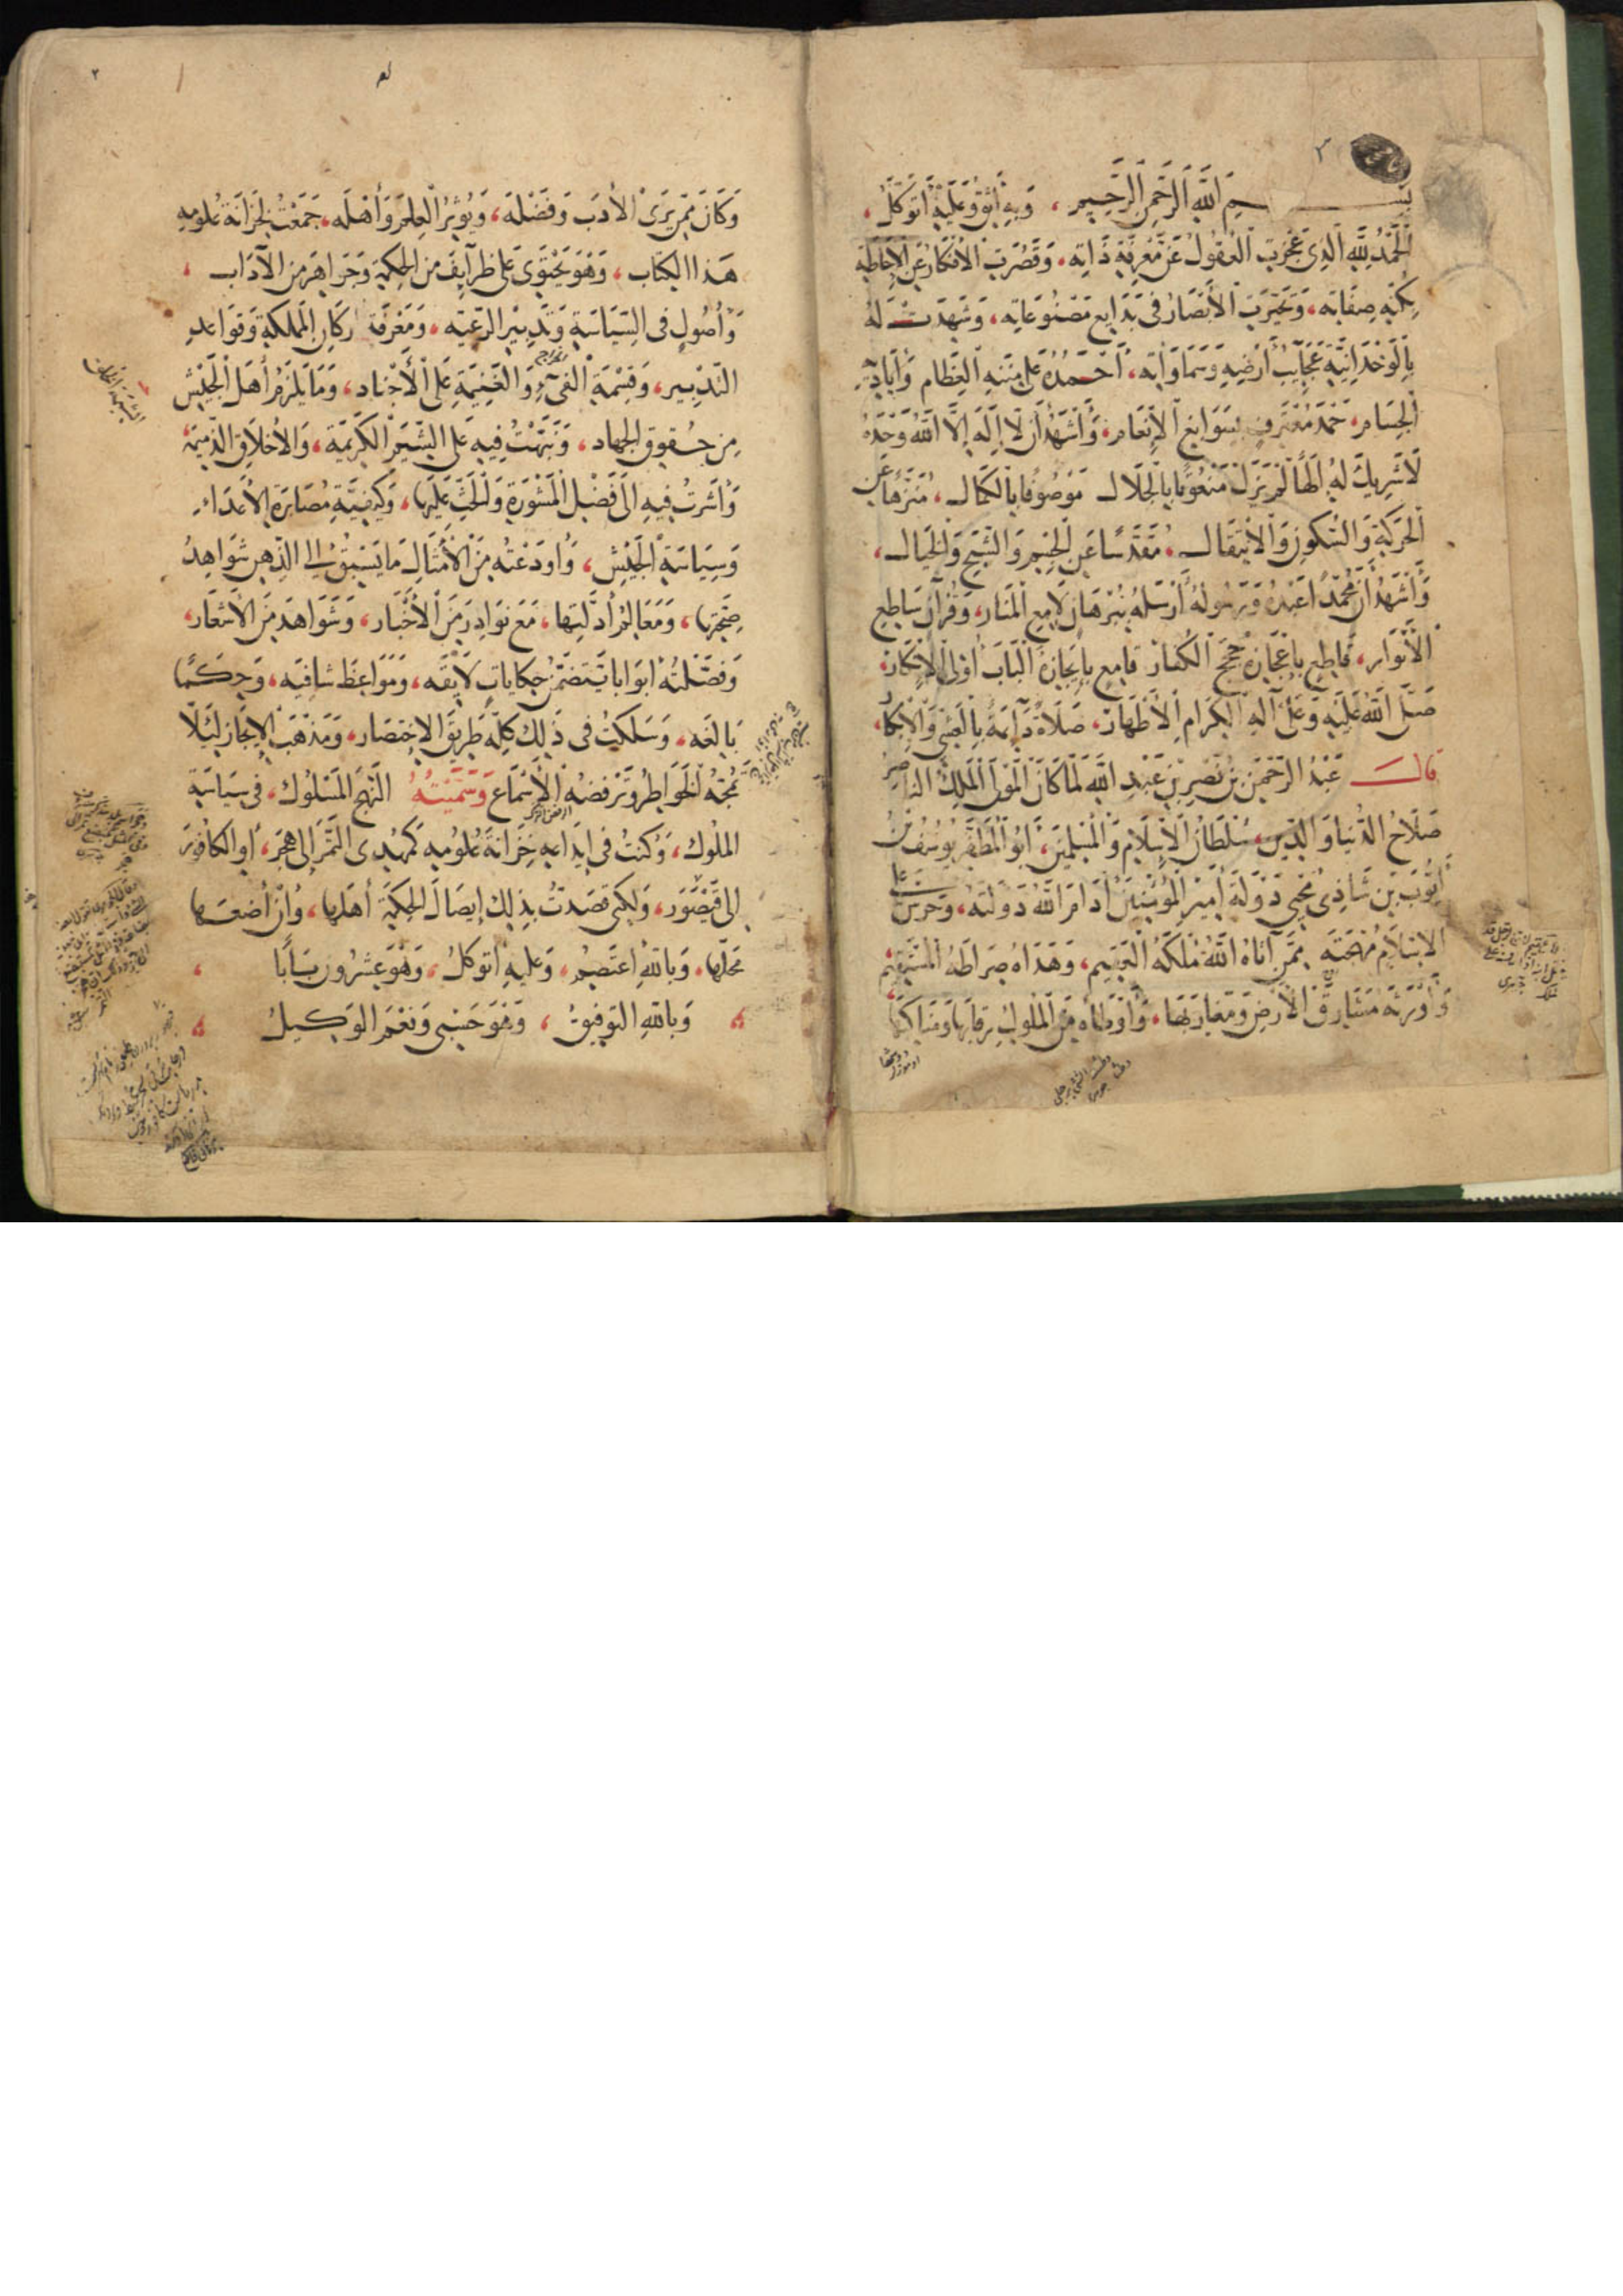 بسم الله الرحمن الرحيم ، وبه أثق وعليه أتوكل ،
الحمد لله الذي عجزت العقول عن معرفة ذاته ، وقصرت الأفكار عن الإحاطة
بكنه صفاته ، وتحيرت الأبصار في بدايع مصنوعاته ، وشهدت له
بالوحدانية عجايب أرضيه وسماواته ، أحمده على مننه العظام وأياديه
الجسام ، حمد معترف بسوابغ الإنعام ، وأشهد أن لا إله إلا الله وحده
لا شريك له إلهًا لم يزل منعوتا بالجلال موصوفا بالكمال ، منزها عن
الحركة والسكون والانتقال ، مقدسا عن الجسم والشبح والخيال ،
وأشهد أن محمدا عبده ورسوله أرسله ببرهان لامع المنار ، وقرآن ساطع
الأنوار ، قاطع بإعجازه حجج الكفار قامع بإيجازه ألباب أولى الإنكار ،
صلى الله عليه وعلى آله الكرام الأطهار ، صلاة دآئمة بالعشي والإبكار ،
قال عبد الرحمن بن نصر بن عبد الله لما كان المولى الملك الناصر
صلاح الدنيا والدين ، سلطان الإسلام والمسلمين ، أبو المظفر يوسف بن
أيوب بن شاذي محيي دولة أمير المؤمنين أدام الله دولته ، وحرس على
الإسلام مهجته ممن آتاه الله ملكه العقيم ، وهداه صراطه المستقيم
وأورثه مشارق الأرض ومغاربها ، وأوطأه من الملوك رقابها ومناكبها
وكان ممن يرى الأدب وفضله ، ويؤثر العلم وأهله ، جمعت لخزانة علومه
هذا الكتاب ، وهو يحتوى على ظرآيف من الحكمة وجواهر من الآداب ،
وأصول فى السياسة وتدبير الرعية ، ومعرفة اركان المملكة وقواعد
التدبير ، وقسمة الفىء والغنيمة على الأجناد ، وما يلزم أهل الجيش
من حقوق الجهاد ، ونبهت فيه على الشيم الكريمة ، والأخلاق الذميمة
وأشرت فيه الى فضل المشورة والحث عليها ، وكيفية مصابرة الأعداء
وسياسة الجيش ، وأودعته من الأمثال ما يسبق الى الذهن شواهد
صحتها ، ومعالم أدلتها ، مع نوادر من الأخبار ، وشواهد من الأشعار ،
وفصلته ابوابا يتضمن حكايات لآيقه ، ومواعظ شافيه ، وحكما
بالغه ، وسلكت فى ذلك كله طريق الاختصار ، ومذهب الإيجاز ليلا
تمجه الخواطر وترفضه الأسماع وسميته النهج المسلوك ، فى سياسة
الملوك ، وكنت فى ابدايه خزانة علومه كمهدى التمر إلى هجر ، أو الكافور
إلى قيصور ، ولكنى قصدت بذلك إيصال الحكمة أهلها ، وأن أضعها
محلها ، وبالله أعتصم ، وعليه أتوكل ، وهو عشرون بابًا ،
وبالله التوفيق ، وهو حسبى ونعم الوكيل